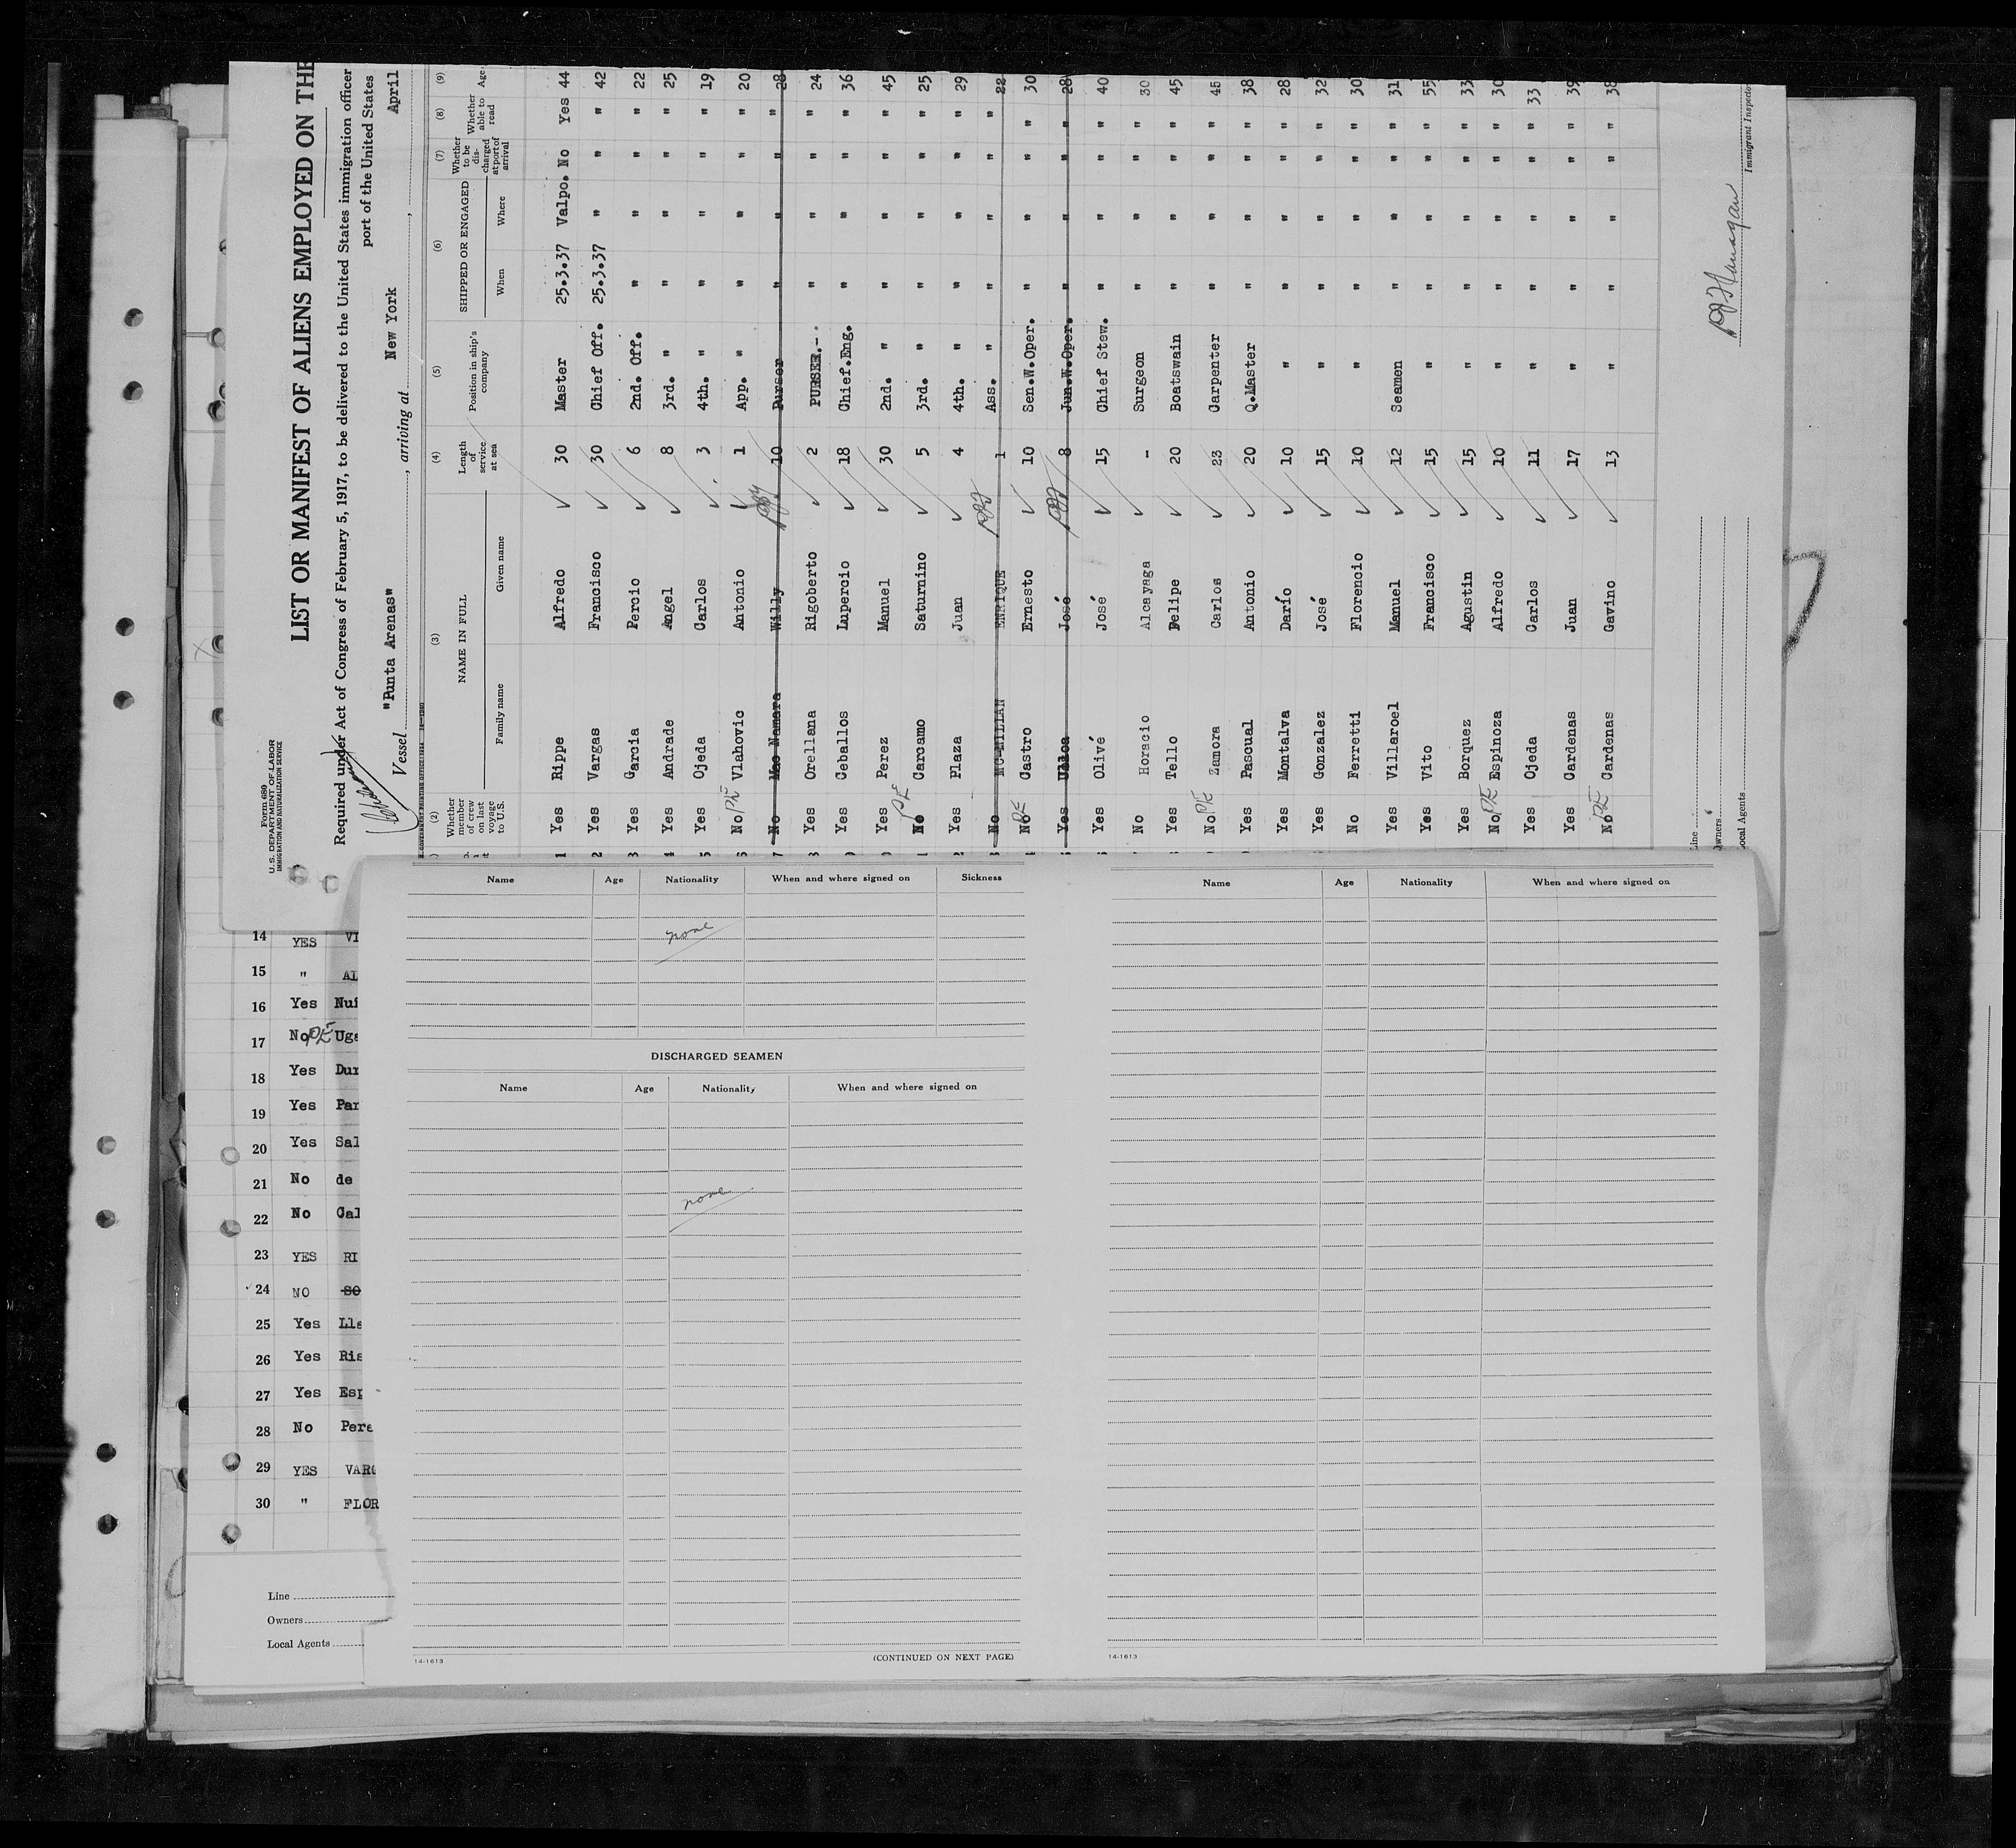 Form 680
U. S. DEPARTMENT OF LABOR
IMMIGRATION AND NATURALIZATION SERVICE
LIST OR MANIFEST OF ALIENS EMPLOYED ON THE
Required under Act of Congress of February 5, 1917, to be delivered to the United States immigration officer
port of the United States
Vessel "Punta Arenas", arriving at New York, April
(2) (3) (4) (5) (6) (7) (8) (9)
Whether member of crew on last voyage to U.S. NAME IN FULL Length of service at sea Position in ship's company SHIPPED OR ENGAGED Whether to be discharged at port of arrival Whether able to read Age
Family name Given name When Where
1 Yes Rippe Alfredo 30 Master 25.3.37 Valpo. No Yes 44
2 Yes Vargas Francisco 30 Chief Off. 25.3.37 " " " 42
3 Yes Garcia Percio 6 2nd. Off. " " " " 22
4 Yes Andrade Angel 8 3rd. " " " " " 25
5 Yes Ojeda Carlos 3 4th. " " " " " 19
6 No PE Vlahovic Antonio 1 App. " " " " " 20
7 No Mac Namara Willy 10 Purser " " " " 28
8 Yes Orellana Rigoberto 2 PURSER.-. " " " " 24
9 Yes Ceballos Lupercio 18 Chief.Eng. " " " " 36
0 Yes Perez Manuel 30 2nd. " " " " " 45
1 No PE Carcamo Saturnino 5 3rd. " " " " " 25
2 Yes Plaza Juan 4 4th. " " " " " 29
3 No MC-MILLAN ENRIQUE 1 Ass. " " " " " 22
4 No PE Castro Ernesto 10 Sen.W.Oper. " " " " 30
Yes Ulloa José 8 Jun.W.Oper. " " " " 28
Yes Olivé José 15 Chief Stew. " " " " 40
No Horacio Alcayaga - Surgeon " " " " 30
Yes Tello Felipe 20 Boatswain " " " " 45
No PE Zamora Carlos 23 Carpenter " " " " 45
Yes Pascual Antonio 20 Q.Master " " " " 38
Yes Montalva Darío 10 " " " " " 28
Yes Gonzalez José 15 " " " " " 32
No Ferretti Florencio 10 " " " " " 30
Yes Villaroel Manuel 12 Seamen " " " " 31
Yes Vito Francisco 15 " " " " " 55
Yes Borquez Agustin 15 " " " " " 33
No PE Espinoza Alfredo 10 " " " " " 30
Yes Ojeda Carlos 11 " " " " " 33
Yes Cardenas Juan 17 " " " " " 39
No PE Cardenas Gavino 13 " " " " " 38
Line
Owners
Local Agents
Immigrant Inspector
14 YES VI
15 " AL
16 Yes Nuñ
17 No PE Uga
18 Yes Dur
19 Yes Par
20 Yes Sal
21 No de
22 No Gal
23 YES RI
24 NO SO
25 Yes Lla
26 Yes Ris
27 Yes Esp
28 No Pere
29 YES VARG
30 " FLOR
Line
Owners
Local Agents
Name Age Nationality When and where signed on Sickness
none
DISCHARGED SEAMEN
Name Age Nationality When and where signed on
none
14-1613 (CONTINUED ON NEXT PAGE)
Name Age Nationality When and where signed on
14-1613